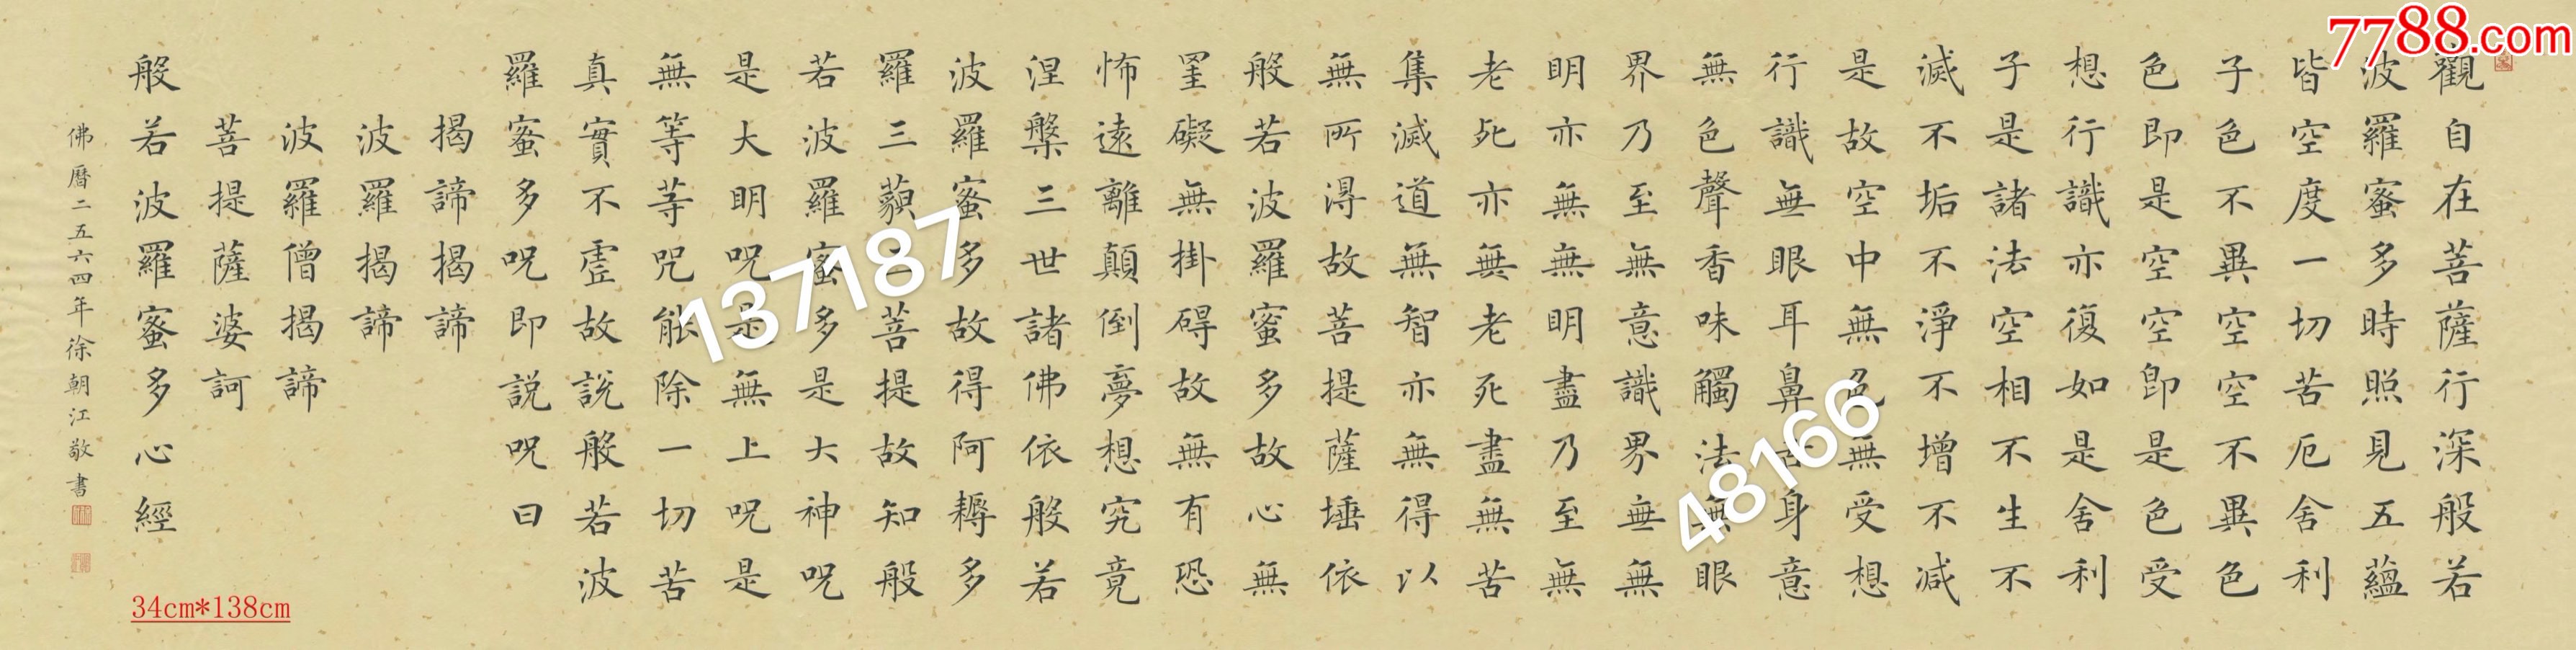 觀自在菩薩行深般若
波羅蜜多時照見五蘊
皆空度一切苦厄舍利
子色不異空空不異色
色即是空空即是色受
想行識亦復如是舍利
子是諸法空相不生不
滅不垢不淨不增不減
是故空中無色無受想
行識無眼耳鼻舌身意
無色聲香味觸法無眼
界乃至無意識界無無
明亦無無明盡乃至無
老死亦無老死盡無苦
集滅道無智亦無得以
無所得故菩提薩埵依
般若波羅蜜多故心無
罣礙無掛碍故無有恐
怖遠離顛倒夢想究竟
涅槃三世諸佛依般若
波羅蜜多故得阿耨多
羅三藐三菩提故知般
若波羅蜜多是大神呪
是大明呪是無上呪是
無等等呪能除一切苦
真實不虛故說般若波
羅蜜多呪即說呪曰
揭諦揭諦
波羅揭諦
波羅僧揭諦
菩提薩婆訶
般若波羅蜜多心經
佛曆二五六四年徐朝江敬書
34cm*138cm
7788.com
137187
48166